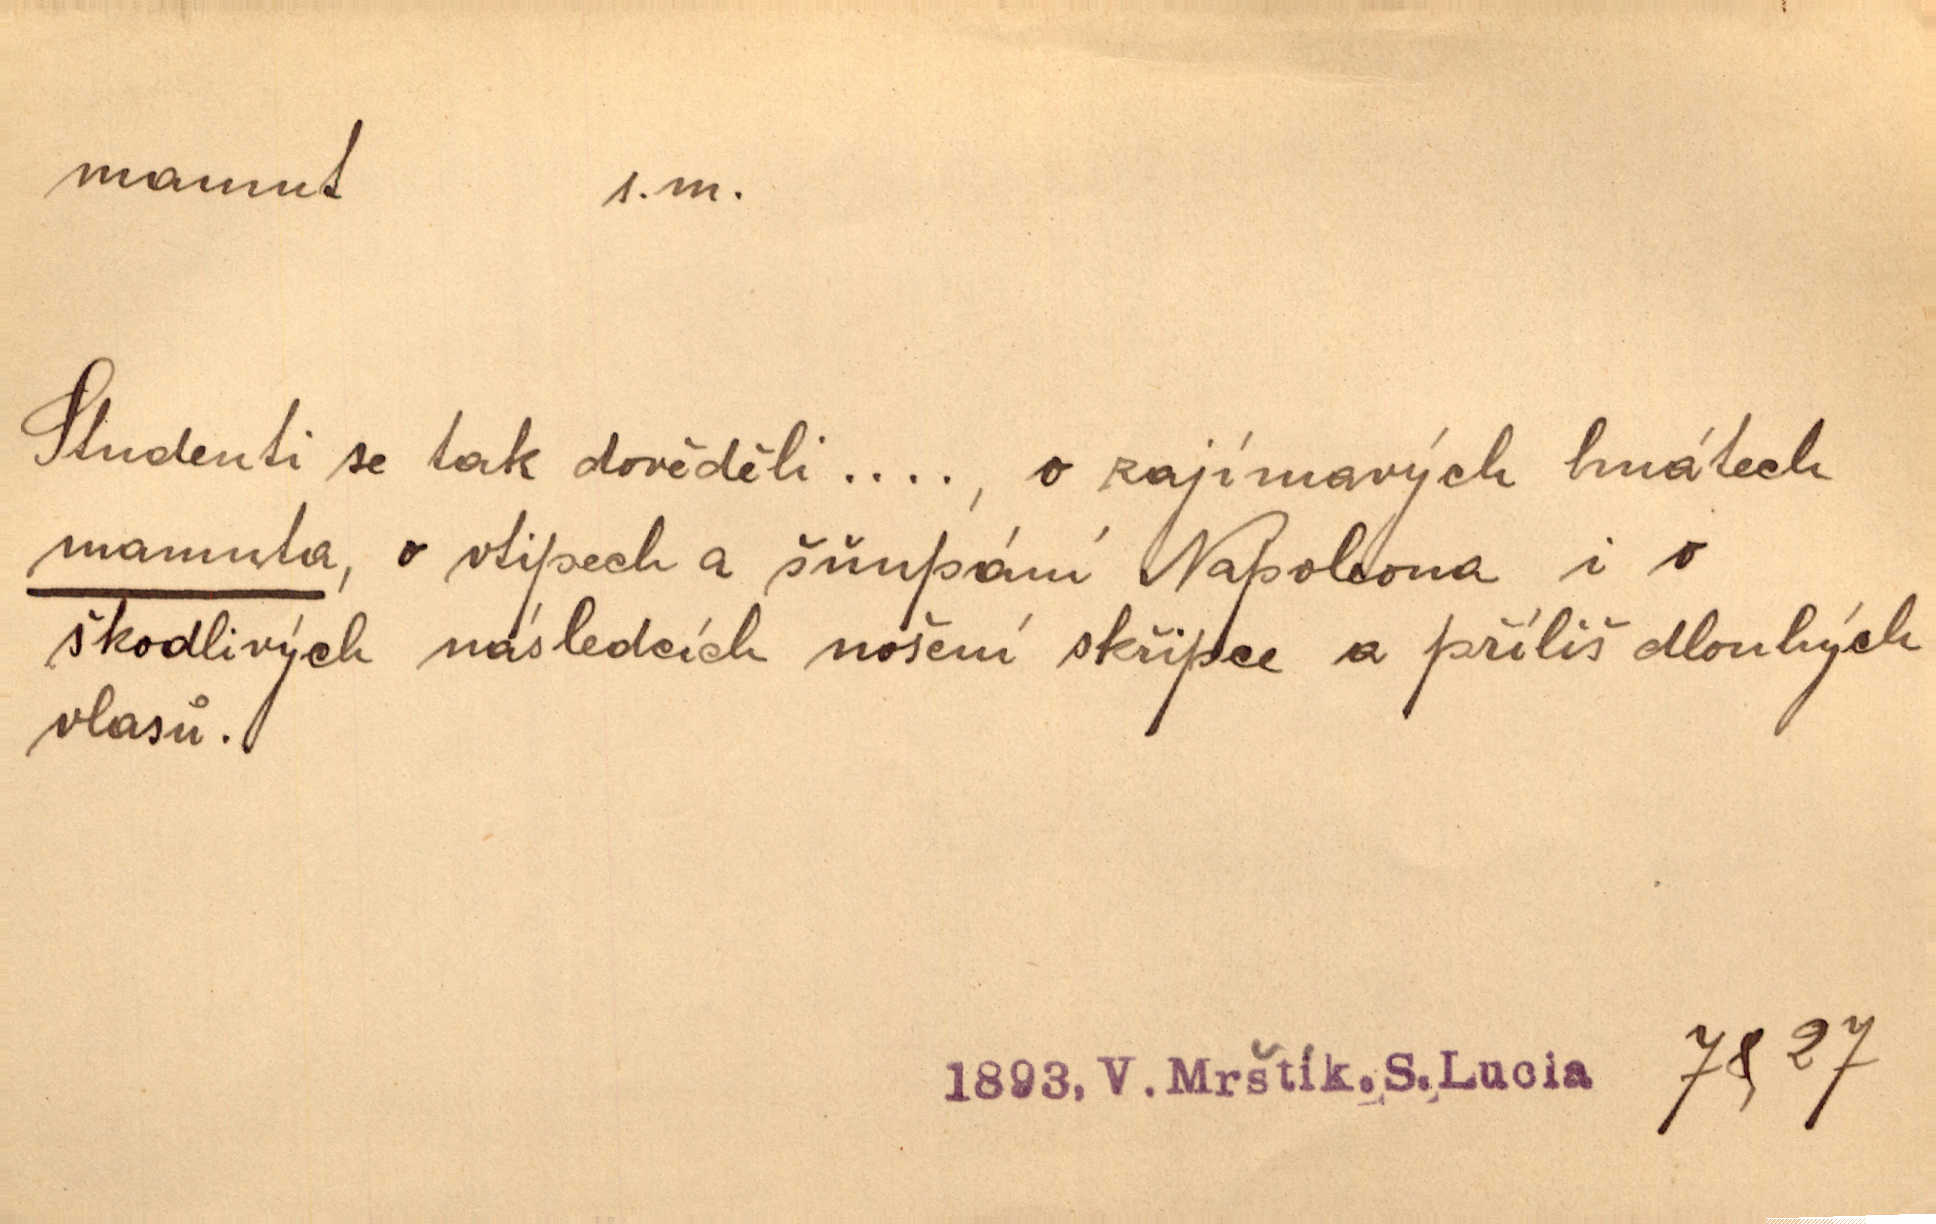 mamut s. m.
Studenti se tak dověděli ...., o zajímavých hnátech
mamuta, o vtipech a šňupání Napoleona i o
škodlivých následcích nošení skřipce a příliš dlouhých
vlasů.
1893, V. Mrštík. S. Lucia 78, 27